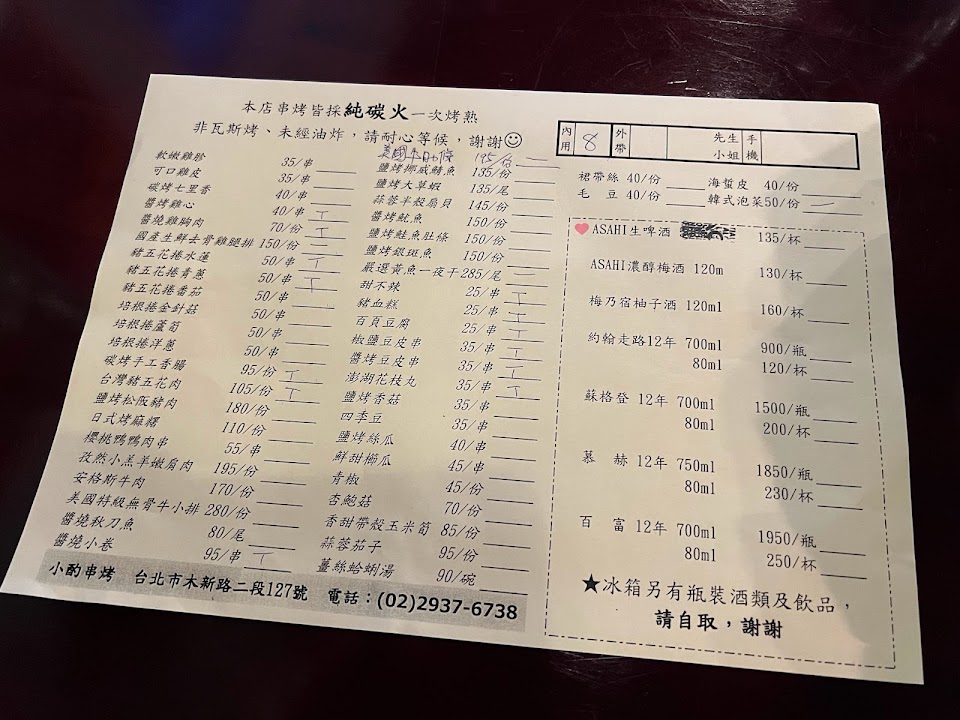 本店串烤皆採純碳火一次烤熟
非瓦斯烤、未經油炸，請耐心等候，謝謝
軟嫩雞胗 35/串
可口雞皮 35/串
碳烤七里香 40/串
醬烤雞心 40/串 T
醬燒雞胸肉 70/份 T
國產生鮮去骨雞腿排 150/份
豬五花捲水蓮 50/串 T
豬五花捲青蔥 50/串 T
豬五花捲番茄 50/串
培根捲金針菇 50/串
培根捲蘆筍 50/串
培根捲洋蔥 50/串
碳烤手工香腸 95/份 T
台灣豬五花肉 105/份 T
鹽烤松阪豬肉 180/份
日式烤麻糬 110/份
櫻桃鴨鴨肉串 55/串
孜然小羔羊嫩肩肉 195/份
安格斯牛肉 170/份
美國特級無骨牛小排 280/份
醬燒秋刀魚 80/尾
醬燒小卷 95/串 T
美國牛肋條 195/份 一
鹽烤挪威鯖魚 135/份
鹽烤大草蝦 135/尾
蒜蓉半殼扇貝 145/份
醬烤魷魚 150/份
鹽烤鮭魚肚條 150/份
鹽烤銀斑魚 150/份
嚴選黃魚一夜干 285/尾
甜不辣 25/串 T
豬血糕 25/串 T
百頁豆腐 25/串 T
椒鹽豆皮串 35/串 T
醬烤豆皮串 35/串 T
澎湖花枝丸 35/串 T
鹽烤香菇 35/串
四季豆 35/串
鹽烤絲瓜 40/串
鮮甜櫛瓜 45/串
青椒 45/份
杏鮑菇 70/份
香甜帶殼玉米筍 85/份
蒜蓉茄子 95/份
薑絲蛤蜊湯 90/碗
小酌串烤 台北市木新路二段127號 電話：(02)2937-6738
內用 8 外帶 先生 小姐 手機
裙帶絲 40/份 海蜇皮 40/份
毛豆 40/份 韓式泡菜50/份 一
ASAHI生啤酒 135/杯
ASAHI濃醇梅酒 120m 130/杯
梅乃宿柚子酒 120ml 160/杯
約翰走路12年 700ml 900/瓶
80ml 120/杯
蘇格登 12年 700ml 1500/瓶
80ml 200/杯
慕赫 12年 750ml 1850/瓶
80ml 230/杯
百富 12年 700ml 1950/瓶
80ml 250/杯
★冰箱另有瓶裝酒類及飲品，
請自取，謝謝